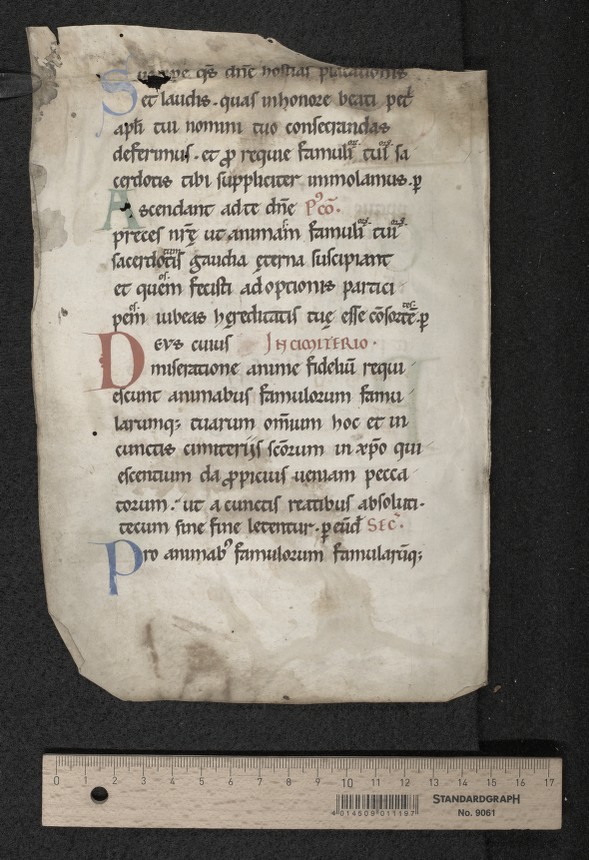 Suscipe qs dñe hostias placationis
et laudis. quas in honore beati pet̃
apłi tui nomini tuo consecrandas
deferimus. et ꝓ requie famuli oꝝ tui oꝝ sa
cerdotis tibi suppliciter immolamus. ꝑ
Ascendant ad te dñe P9cõ.
preces nrę ut animam famuli oꝝ tui oꝝ
sacerdotis tum gaudia ęterna suscipiant
et quem os fecisti adoptionis partici
pem es iubeas hęreditatis tuę esse cõsortẽ tes. ꝑ
DEVS cuius IN CIMITERIO.
miseratione anime fideliũ requi
escunt animabus famulorum famu
larumq; tuarum omĩum hoc et in
cunctis cimiterijs scõrum in xp̃o qui
escentium da ꝓpicius ueniam pecca
torum. ut a cunctis reatibus absoluti.
tecum sine fine letentur. ꝑ eũd̃ SEC̃.
Pro animab9 famulorum famularũq;
0 1 2 3 4 5 6 7 8 9 10 11 12 13 14 15 16 17
STANDARDGRAPH
4 014509 011197
No. 9061